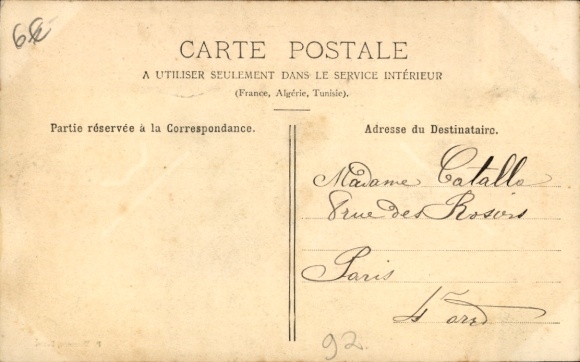 CARTE POSTALE
A UTILISER SEULEMENT DANS LE SERVICE INTÉRIEUR
(France, Algérie, Tunisie).
Partie réservée à la Correspondance.
Adresse du Destinataire.
Madame Catalla
8 rue des Rosiers
Paris
4e ard
92.